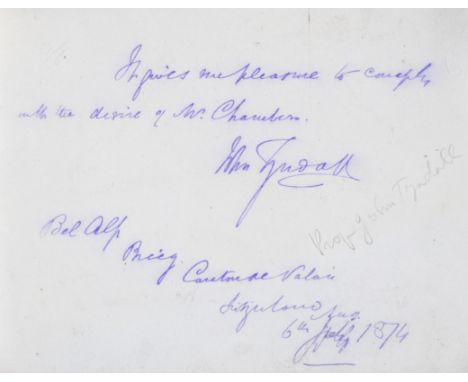 It gives me pleasure to comply
with the desire of Mr. Chambers.
John Tyndall
Prof. John Tyndall
Bel Alp
Brieg
Canton de Valais
Switzerland
6th 1874